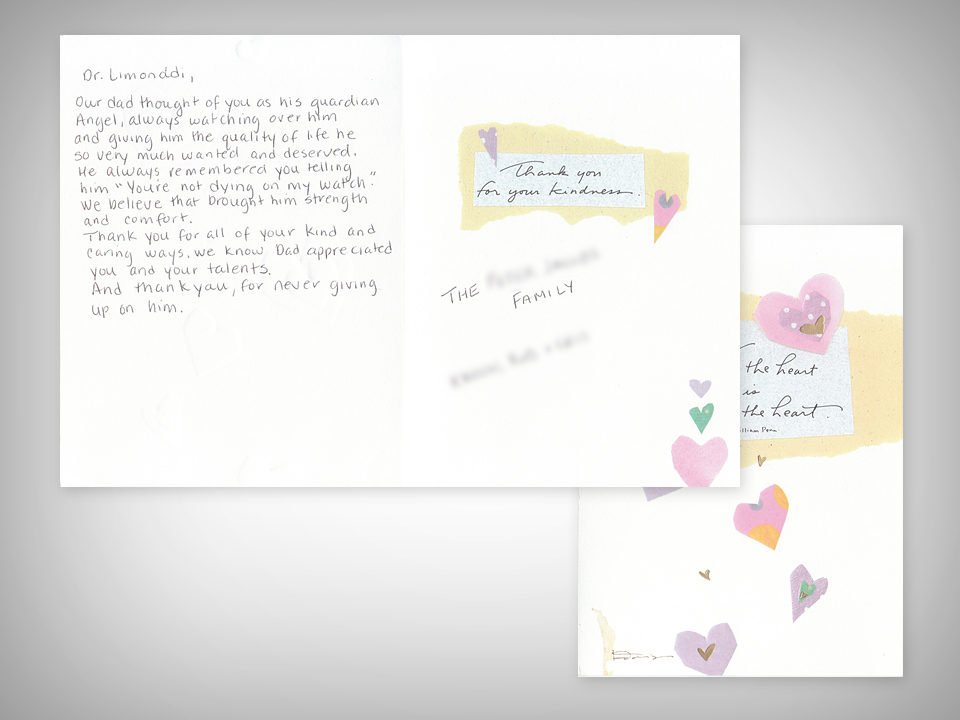 Dr. Limonddi,
Our dad thought of you as his guardian
Angel, always watching over him
and giving him the quality of life he
so very much wanted and deserved.
He always remembered you telling
him "You're not dying on my watch."
We believe that brought him strength
and comfort.
Thank you for all of your kind and
caring ways. we know Dad appreciated
you and your talents.
And thank you, for never giving
up on him.
Thank you
for your kindness.
THE
FAMILY
the heart
is
the heart.
illiam Penn